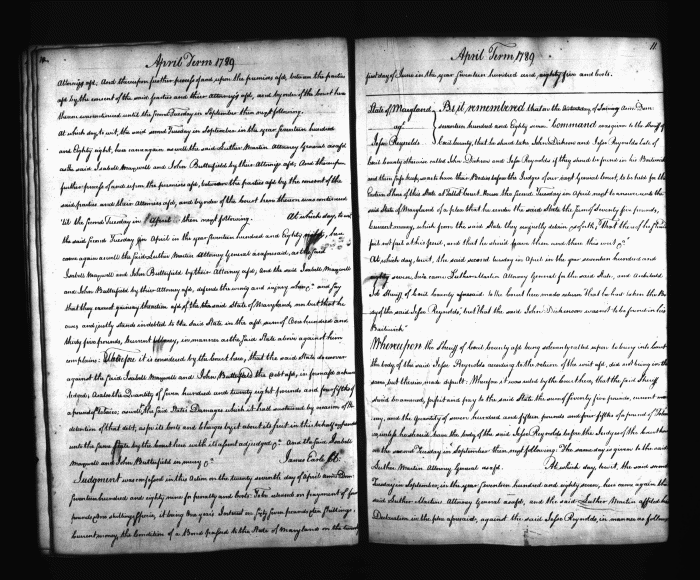 10
April Term 1789
Attorneys afd. And thereupon further process of and upon the premises afd, between the parties
afd by the consent of the said parties and their Attorneys afd, and by order of the Court here
thereon continued until the second Tuesday in September then next following.
At which day to wit, the said second Tuesday in September in the year seventeen hundred
and Eighty eight, here came again as well the said Luther Martin Attorney General as afd
as the said Isabell Maxwell and John Butterfield by their Attorney afd; And thereupon
further process of and upon the premises afd, between the parties afd by the consent of the
said parties and their Attornies afd, and by order of the Court here thereon was continued
'till the second Tuesday in April then next following. At which day, to wit
the said second Tuesday in April in the year seventeen hundred and Eighty here
came again as well the said Luther Martin Attorney General as aforesaid, as the said
Isabell Maxwell and John Butterfield by their Attorney afd, And the said Isabell Maxwell
and John Butterfield by their Attorney afd, defends the wrong and injury when &c and say
that they cannot gainsay the action afd of the said State of Maryland, nor but that he
owes and justly stands indebted to the said State in the afd sum of One hundred and
thirty five pounds, current money, in manner as the said State above against them
complains: Therefore it is considered by the Court here, that the said State do recover
against the said Isabell Maxwell and John Butterfield the debt afd, in form afd
Also the Quantity of seven hundred and twenty eight pounds and four fifths of
a pound of tobacco; the said State's Damages which it had sustained by occasion of the
detention of that debt, as for its costs and charges by it about its suit in this behalf
unto the same State by the Court here with its assent adjudged &c And the said Isabell
Maxwell and John Butterfield in mercy &c James Earle Clk.
Judgment was confessed in this Action on the twenty seventh day of April Anno Dom
seventeen hundred and eighty nine for penalty and costs. To be released on payment of four
pounds shillings Specie, it being two years Interest on Sixty five pounds ten Shillings
Current money, the Condition of a Bond passed to the State of Maryland on the twenty
11
April Term 1789
first day of June in the year seventeen hundred and eighty five and costs.
State of Maryland
agt
Jesse Reynolds
Be it remembered that on the day of January Anno Dom
seventeen hundred and Eighty seven "Command was given to the Sheriff of
Cecil County, that he should take John Dickson and Jesse Reynolds late of
Cecil County otherwise called John Dickson and Jesse Reynolds if they should be found in his Bailiwick
and them safe keep, so as to have their Bodies before the Judges of our next General Court, to be held for the
Eastern Shore of this State at Talbot Court House the second Tuesday in April next to answer unto the
said State of Maryland of a plea that he render the said State the sum of seventy five pounds,
Current money, which from the said State they unjustly detain &c with, "That the said Sheriff
fail not at his peril, and that he should have then and there this writ &c"
At which day, to wit, the said second tuesday in April in the year seventeen hundred and
eighty seven, here came Luther Martin Attorney General for the said State, and
Sheriff of Cecil County aforesaid, to the Court here made return "that he had taken the Body
of the said Jesse Reynolds, but that the said John Dickerson was not to be found in his
Bailiwick."
Whereupon the Sheriff of Cecil County afd being solemnly called upon to bring into Court
the body of the said Jesse Reynolds according to the return of the writ afd, did not bring in the
same, but therein made default. Wherefore it was ruled by the Court here, that the said Sheriff
should be amerced, forfeit and pay to the said State the sum of seventy five pounds, current money
and the quantity of seven hundred and fifteen pounds and four fifths of a pound of Tobacco
unless he should have the body of the said Jesse Reynolds before the Judges of the Court here
on the second Tuesday in September then next following. The same day is given to the said
Luther Martin Attorney General as afd. At which day, to wit, the said second
Tuesday in September, in the year seventeen hundred and eighty seven, here came again the
said Luther Martin Attorney General as afd, and the said Luther Martin
Declaration in the plea aforesaid, against the said Jesse Reynolds, in manner as follows